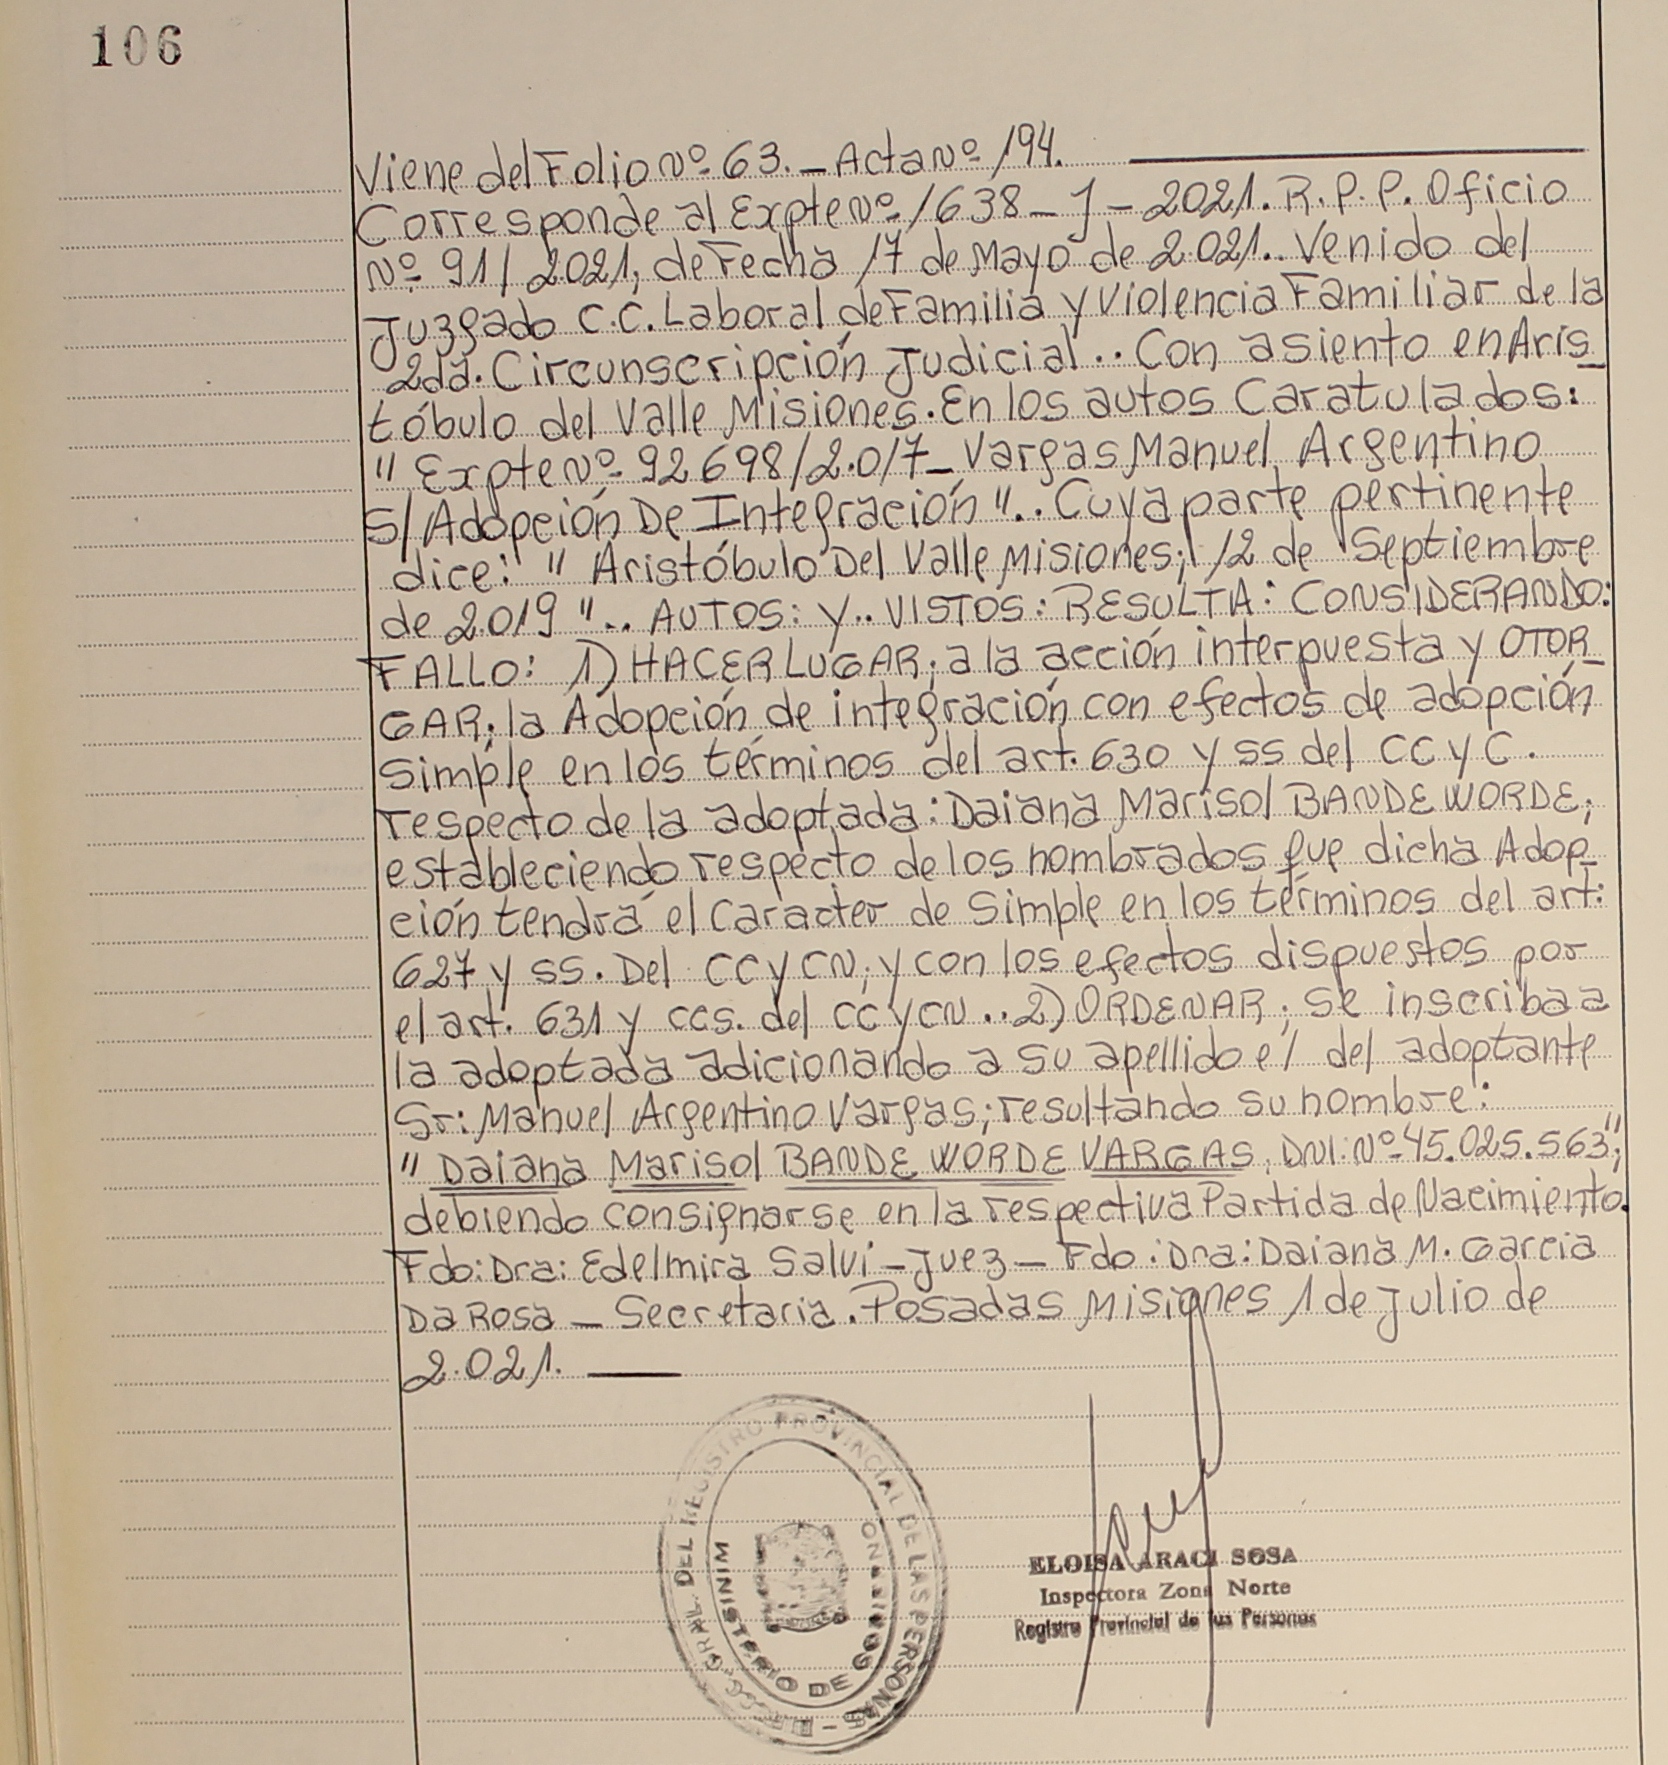 106
Viene del Folio Nº 63._ Acta Nº 194.
Corresponde al Expte Nº 1638_J_2021. R.P.P. Oficio
Nº 91/2021, de Fecha 17 de Mayo de 2.021.. Venido del
Juzgado C.C. Laboral de Familia y Violencia Familiar de la
2da. Circunscripción Judicial.. Con asiento en Aris_
tóbulo del Valle Misiones. En los autos Caratulados:
" Expte Nº 92698/2.017_ Vargas Manuel Argentino
S/ Adopción De Integración ".. Cuya parte pertinente
dice: " Aristóbulo Del Valle Misiones; 12 de Septiembre
de 2.019 ".. AUTOS: y.. VISTOS: RESULTA: CONSIDERANDO:
FALLO: 1) HACER LUGAR; a la acción interpuesta y OTOR_
GAR; la Adopción de integración con efectos de adopción
Simple en los términos del art. 630 y ss del CC y C.
respecto de la adoptada: Daiana Marisol BANDE WORDE;
estableciendo respecto de los nombrados que dicha Adop_
ción tendrá el Carácter de Simple en los términos del art:
627 y ss. Del CC y CN; y con los efectos dispuestos por
el art. 631 y ccs. del CC y CN.. 2) ORDENAR; se inscriba a
la adoptada adicionando a su apellido el del adoptante
Sr: Manuel Argentino Vargas; resultando su nombre:
" Daiana Marisol BANDE WORDE VARGAS, DNI: Nº 45.025.563";
debiendo consignarse en la respectiva Partida de Nacimiento.
Fdo: Dra: Edelmira Salvi _ Juez _ Fdo: Dra: Daiana M. Garcia
Da Rosa _ Secretaria. Posadas Misiones 1 de Julio de
2.021.
GRAL. DEL REGISTRO PROVINCIAL DE LAS PERSONAS
MINISTERIO DE GOBIERNO
ELOISA ARACI SOSA
Inspectora Zona Norte
Registro Provincial de las Personas